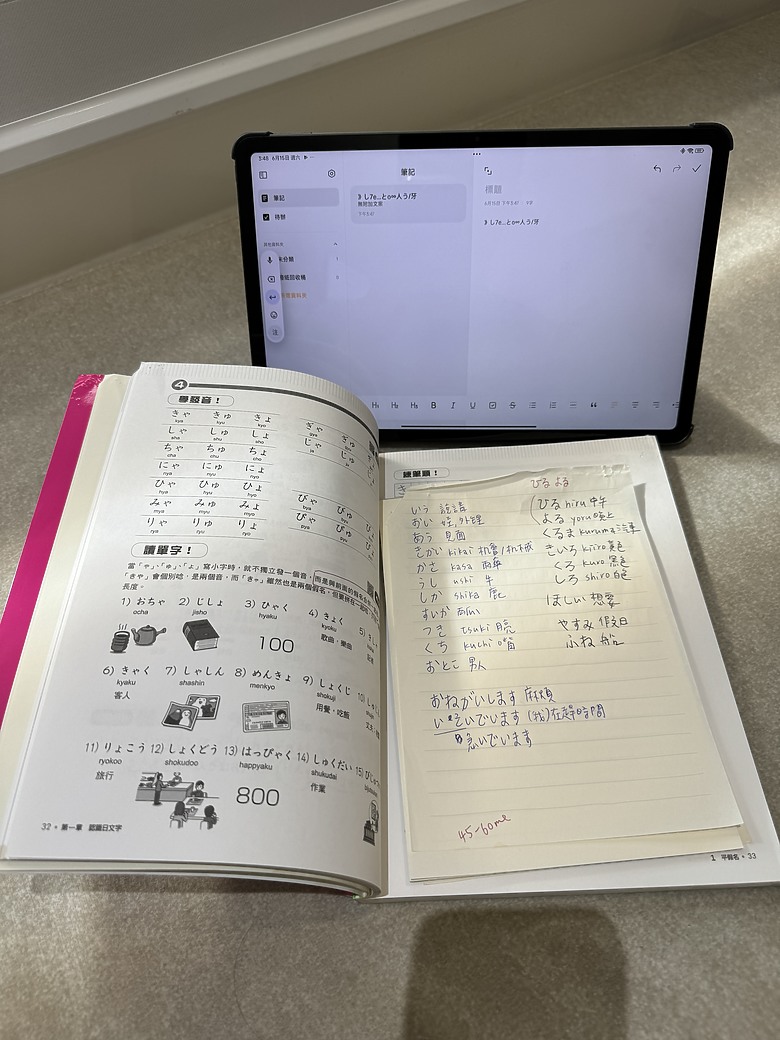 3:48 6月15日 週六
筆記
待辦
未分類 1
筆記
》し7e…とo∞人う/牙
無附加文案
下午3:47
標題
》し7e…とo∞人う/牙
H₁ H₂ H₃ B I U
注
4
學發音！
きゃ きゅ きょ
kya kyu kyo
しゃ しゅ しょ
sha shu sho
ちゃ ちゅ ちょ
cha chu cho
にゃ にゅ にょ
nya nyu nyo
ひゃ ひゅ ひょ
hya hyu hyo
みゃ みゅ みょ
mya myu myo
りゃ りゅ りょ
rya ryu ryo
ぎゃ ぎゅ
gya gyu
じゃ じゅ
ja ju
びゃ びゅ
bya byu
ぴゃ ぴゅ
pya pyu
讀單字！
當「ゃ」、「ゅ」、「ょ」寫小字時，就不獨立發一個音，而是與前面的假名合
「きや」會個別唸，是兩個音，而「きゃ」雖然也是兩個假名，但要拼在一起
長度。
1) おちゃ 2) じしょ 3) ひゃく 4) きょく 5)
ocha jisho hyaku kyoku
100 歌曲，樂曲
6) きゃく 7) しゃしん 8) めんきょ 9) しょくじ 10)
kyaku shashin menkyo shokuji
客人 用餐，吃飯
11) りょこう 12) しょくどう 13) はっぴゃく 14) しゅくだい 15)
ryokoo shokudoo happyaku shukudai
旅行 800 作業
32 • 第一章 認識日文字
練單韻！
ひる よる
いう 說，講
おい 姪,外甥
あう 見面
きかい kikai 机會/机械
かさ kasa 雨傘
うし ushi 牛
しか shika 鹿
すいか
つき tsuki
くち kuchi 嘴
おとこ 男人
ひる hiru 中午
よる yoru 晚上
くるま kuruma 汽車
きいろ kiiro 黃色
くろ kuro 黑色
しろ shiro 白色
ほしい 想要
やすみ 假文日
ふね 船
おねがいします 麻煩
いそいでいます (我)在趕時間
急いでいます
45-60me
1 平假名 • 33